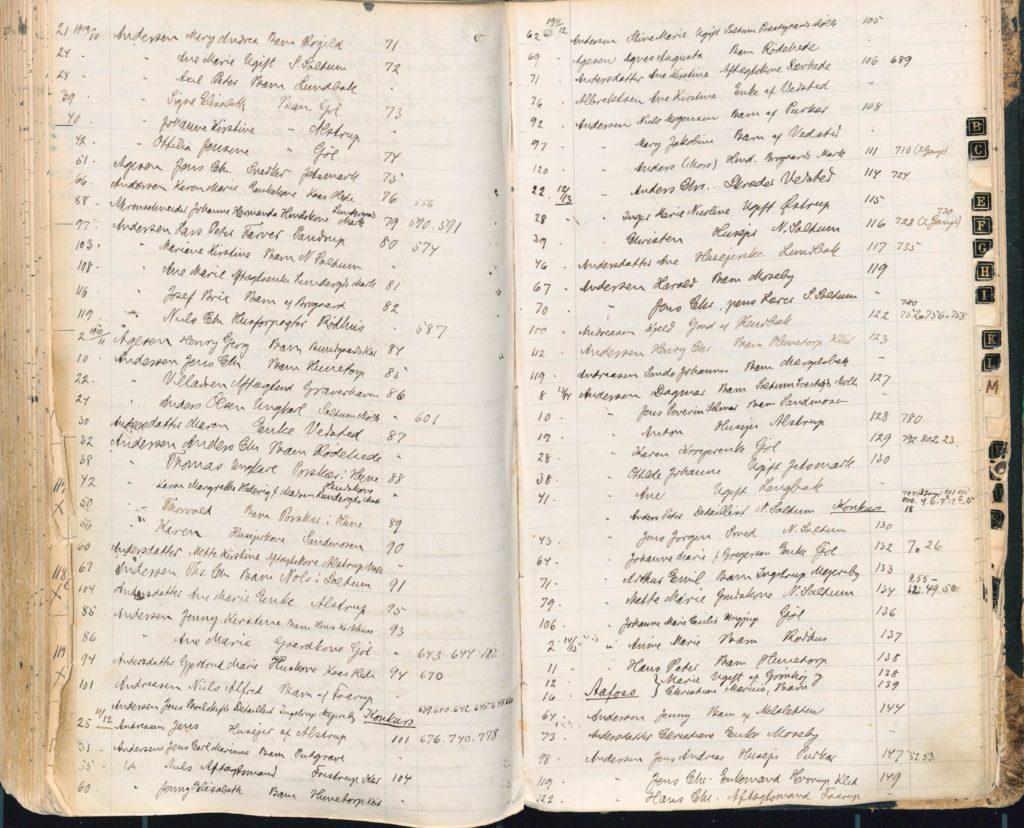 21 1909/10 Andersen Mary Andrea Barn Rögild 71
24 " Ane Marie Ugift S. Saltum 72
28 - " Axel Peter Barn Lundbak "
39 " Signe Elisabeth Barn Gjöl 73
40 " Johanne Kirstine " Alstrup "
42 - " Ottilia Jensine " Gjöl 74
61 - Agesen Jens Chr. Snedker Jetsmark 75
66 - Andersen Karen Marie Enkekone Kaas Hede 76 556
88 - Johanne Hermanda Huskone Lundergaards Mark 79 590.591
97 - Andersen Lars Peter Farver Pandrup 80 574
103. " Mariane Kirstine Barn N. Saltum "
108. " Ane Marie Aftægtsenke Lundergds Mark 81
116 " Josef Brix Barn af Brogaard 82
119. " Niels Chr. Husforpagter Rödhus " 587
2 1910/11 Agesen Henry Georg Barn 84
10. Andersen Jens Chr. Barn Hunetorp 85
22. " Villadsen Aftægtsmd Graverhaven 86
24 " Anders Olsen Ungkarl Saltum Mölle " 601
30 Andersdatter Maren Enke Vedsted 87
32 Andersen Anders Chr. Barn Rödehede "
38 " Thomas Ungkarl Porsker i Hune 88
42 " Laura Margrethe Hedevig f. Madsen Huskone Lundergds Mark "
50 " Thorvald Barn Porsker i Hune 89
56 " Karen Husejerkone Sandmosen 90
60 Andersdatter Mette Kirstine Aftægtskone Alstrup Mark "
67 Andersen Ths. Chr. Barn Nols i Saltum 91
104 Andersdatter Ane Marie Enke Alstrup 95
85 Andersen Jenny Kirstine Barn Hune Kirkhuse 93
86 " Ane Marie Gaardkone Gjöl " 643.644
94 Andersdatter Gjertrud Marie Huskone Kaas Hede 94 670
101 Andreasen Niels Alfred Barn af Faarup "
Andersen Jens Detaillist Ingstrup Mejeriby Konkurs 639.640.642.645
25 11/12 Andreasen Jens Husejer af Alstrup 101 676.740.778
31 - Andersen Jens Carl Marinus Barn "
55 - " Niels Aftægtsmand 104
60 - " Jenny Elisabeth Barn Hunetorp Klit "
114
X
118
X
119
X
62 1911/12 Andersen Stine Marie Ugift Saltum Præstgaards Mölle 105
69 - Agesen Agnes Augusta Barn Rödehede "
71 Andersdatter Ane Kirstine Aftægtskone 106 689
76 Albrektsen Ane Kirstine Enke af Vedsted "
92 - Andersen Niels Mogensen Barn af Purkær 108
97 - " Mary Jakobine Barn af Vedsted "
120 - " Anders (Mors) Hmd. Brogaards Mark 111 710 (2 Gange)
22 12/13 " Anders Chr. Skræder Vedsted 114 724
28 - " Inger Marie Nicoline Ugift Östrup 115
39 " Christen Husejer N. Saltum 116 728 (2 Gange) 730
46 - Andersdatter Ane Husejerske Lundbak 117 735
67 - Andersen Harald Barn Moseby 119
70 " Jens Chr. pens. Lærer S. Saltum "
100 - Andreasen Kjeld Gmd af Lundbak 122 740 752.6.756.758
112 - Andersen Henry Chr. Barn Hunetorp Klit 123
119 - Andreasen Sanda Johannes Barn "
8 13/14 Andersen Dagmar Barn Saltum Mölle 127
10 - " Jens Severin Selmar Barn Sandmosen "
19 " Anton Husejer Alstrup 128 780
28 - " Karen Gjöl 129 792.802.23.
38 - " Othilde Johanne Ugift Jetsmark 130
41. " Ane Ugift Langbak "
" Anders Peter Detaillist N. Saltum Konkurs 18
43 - " Jens Jörgen Smed N. Saltum 130
64. " Johanne Marie f. Gregersen Enke Gjöl 132 7.26
71 - " Arthur Emil Barn Ingstrup Mejeriby 133
79 - " Mette Marie Gaardkone N. Saltum 134 255- 12.49.50
106 - " Johanne Marie Cecilie Ungpige Gjöl 136
2 14/15 " Anine Marie Barn Rödhus 137
11 - " Hans Peter Barn Hunetorp 138
12 - " Marie Ugift af Grönhöj og 138
16 - Aafoss } Christian Marius, Barn 139
64 - Andersen Jenny Barn af Melsletten 144
73 - Andersdatter Christiane Enke Moseby "
98 - Andersen Jens Andreas Husejer Purkær 147 52.53.
119 " Jens Chr. Enkemand Hvorup Klit 149
122 - " Hans Chr. Aftægtsmand Faarup "
B
C
E
F
G
H
I
K
L
M